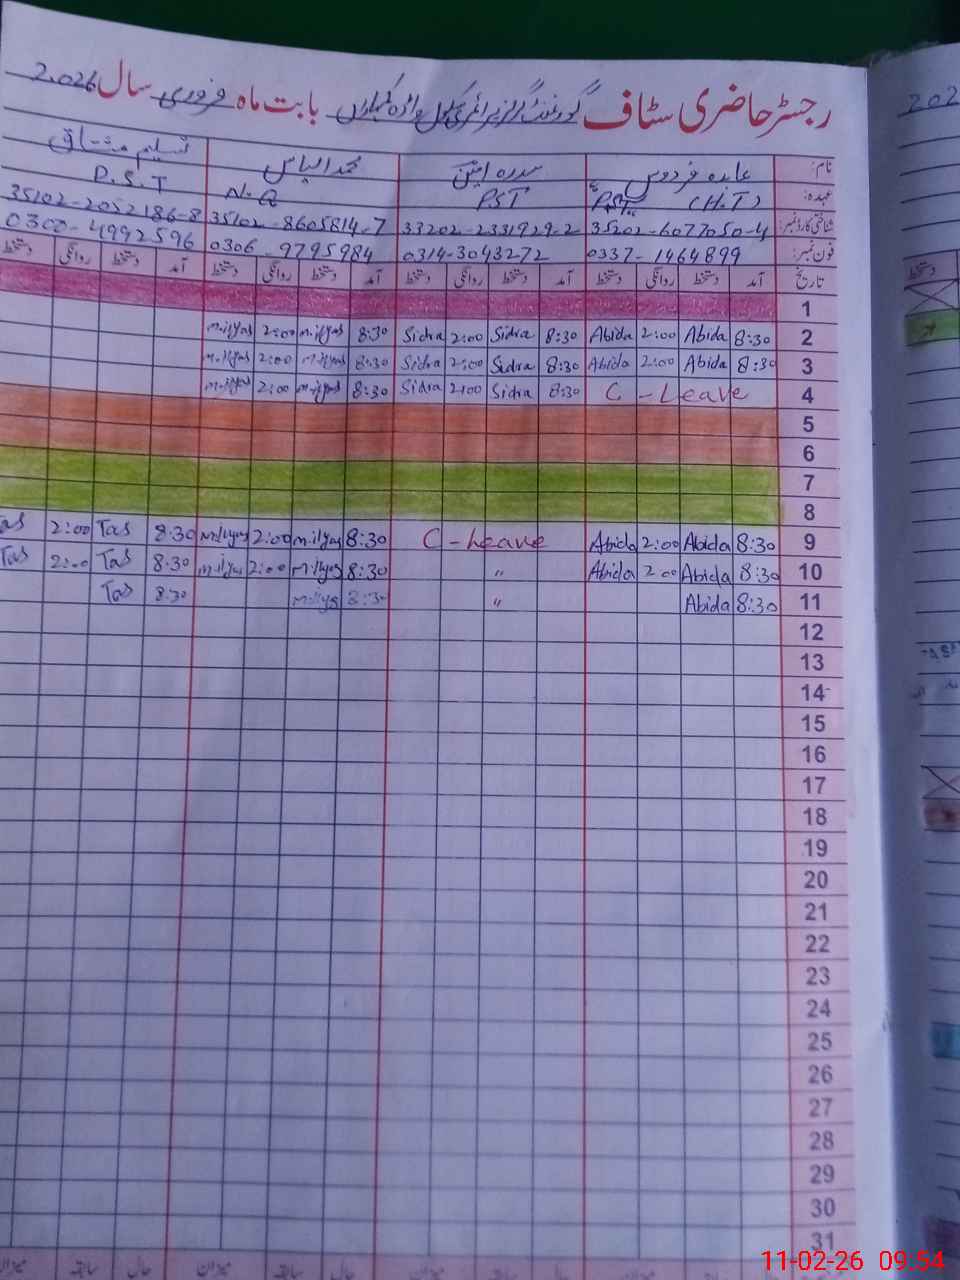 رجسٹر حاضری سٹاف گورنمنٹ گرلز پرائمری سکول واڑہ کمہاراں بابت ماہ فروری سال 2026
نام: عابدہ فردوس سدرہ امین محمد الیاس تسلیم مشتاق
عہدہ: PST (H.T) PST N.Q P.S.T
شناختی کارڈ نمبر: 35202-6077050-4 33202-2331929-2 35102-8605814-7 35102-2052186-8
فون نمبر: 0337-1464899 0314-3043272 0306-9795984 0300-4992596
تاریخ آمد دستخط روانگی دستخط آمد دستخط روانگی دستخط آمد دستخط روانگی دستخط آمد دستخط روانگی دستخط
1
2 8:30 Abida 2:00 Abida 8:30 Sidra 2:00 Sidra 8:30 m.ilyas 2:00 m.ilyas
3 8:30 Abida 2:00 Abida 8:30 Sidra 2:00 Sidra 8:30 m.ilyas 2:00 m.ilyas
4 C - Leave 8:30 Sidra 2:00 Sidra 8:30 m.ilyas 2:00 m.ilyas
5
6
7
8
9 8:30 Abida 2:00 Abida C - Leave 8:30 m.ilyas 2:00 m.ilyas 8:30 Tas 2:00 Tas
10 8:30 Abida 2:00 Abida " 8:30 m.ilyas 2:00 m.ilyas 8:30 Tas 2:00 Tas
11 8:30 Abida " 8:30 m.ilyas 8:30 Tas
12
13
14
15
16
17
18
19
20
21
22
23
24
25
26
27
28
29
30
31
میزان حال سابقہ میزان حال سابقہ میزان حال سابقہ میزان
202
دستخط
11-02-26 09:54